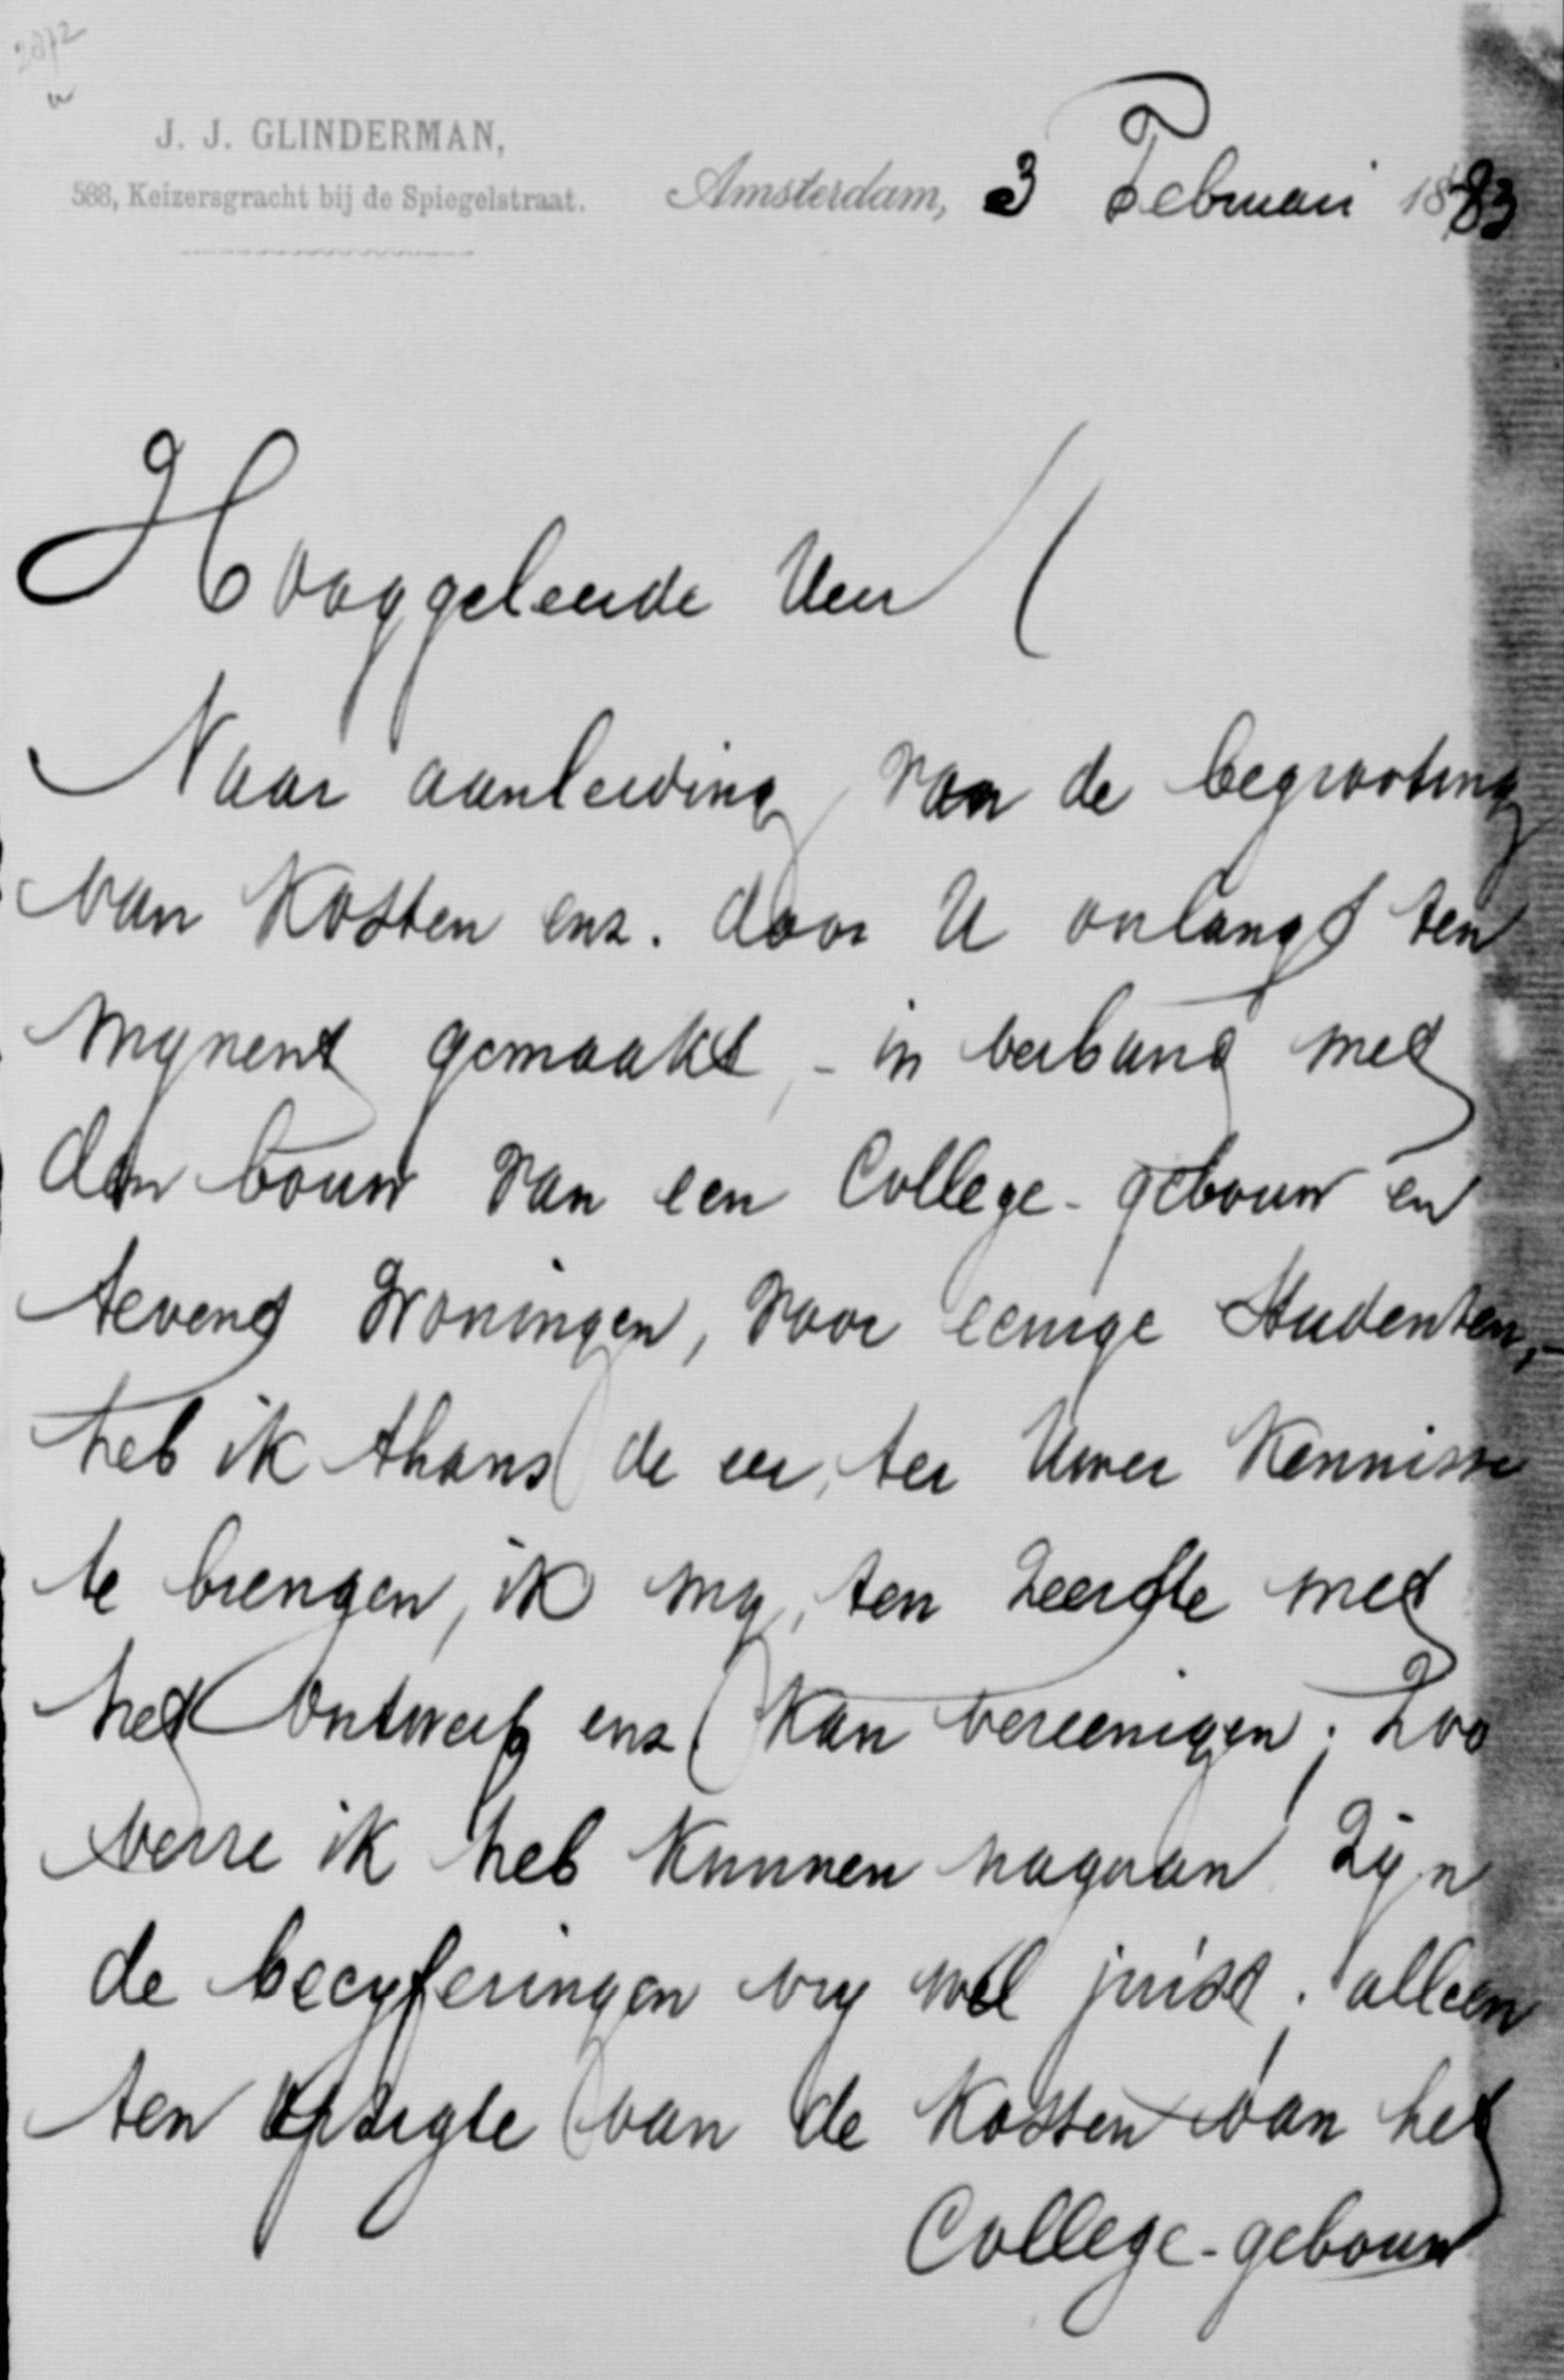 2072
J. J. GLINDERMAN,
588, Keizersgracht bij de Spiegelstraat.
Amsterdam, 3 Februari 1883
Hooggeleerde Heer!
Naar aanleiding van de begrooting
van kosten enz. door U onlangs ten
mijnent gemaakt, - in verband met
den bouw van een College-gebouw en
tevens Woningen, voor eenige Studenten,-
heb ik thans de eer, ter Uwer kennisse
te brengen, ik mij, ten zeerste met
het Ontwerp enz. kan vereenigen; Zoo
verre ik heb kunnen nagaan zijn
de becijferingen vrij wel juist; alleen
ten opzigte van de kosten van het
College-gebouw